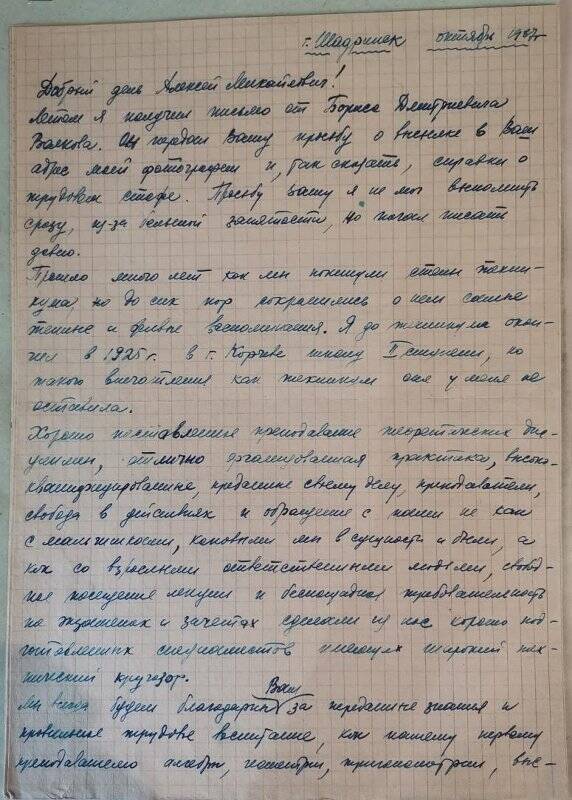 г. Шадринск октябрь 1987г
Добрый день Алексей Михайлович!
Летом я получил письмо от Бориса Дмитриевича
Волкова. Он передал Вашу просьбу о высылке в Ваш
адрес моей фотографии и, так сказать, справки о
трудовом стаже. Просьбу Вашу я не мог выполнить
сразу, из-за большой занятости, но начал писать
давно.
Прошло много лет как мы покинули стены техни-
кума, но до сих пор сохранились о нем самые
теплые и живые воспоминания. Я до техникума окон-
чил в 1925г. в г. Корчеве школу II ступени, но
такого впечатления как техникум она у меня не
оставила.
Хорошо поставленное преподавание теоретических дис-
циплин, отлично организованная практика, высоко-
квалифицированные, преданные своему делу, преподаватели,
свобода в действиях и обращение с нами не как
с мальчишками, каковыми мы в сущности и были, а
как со взрослыми ответственными людьми, свобод-
ное посещение лекций и беспощадная требовательность
на экзаменах и зачетах сделали из нас хорошо под-
готовленных специалистов имеющих широкий тех-
нический кругозор.
Мы всегда будем благодарны Вам за переданные знания и
трудовое воспитание, как нашему первому
преподавателю алгебры, геометрии, тригонометрии, выс-